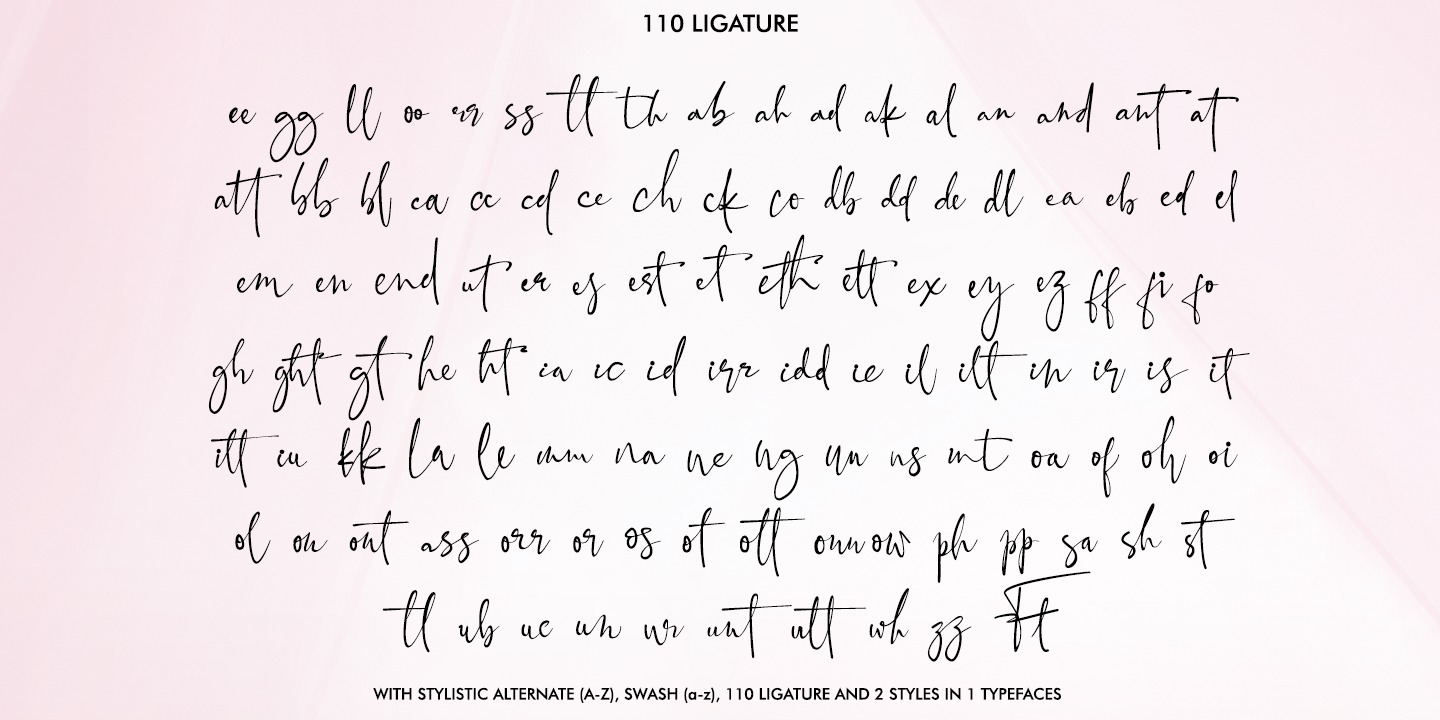 110 LIGATURE
ee gg ll oo rr ss tt th ab ah ad ak al an and ant at
att bb bl ca cc cd ce ch ck co db dd de dl ea eb ed el
em en end ut er es est et eth ett ex ey ez ff fi fo
gh ght gt he ht ia ic id irr idd ie il ilt in ir is it
itt iu kk la le mm na ne ng nn ns nt oa of oh oi
ol on ont ass orr or os ot ott onn ow ph pp sa sh st
tl ub uc un ur unt utt wh zz Ft
WITH STYLISTIC ALTERNATE (A-Z), SWASH (a-z), 110 LIGATURE AND 2 STYLES IN 1 TYPEFACES